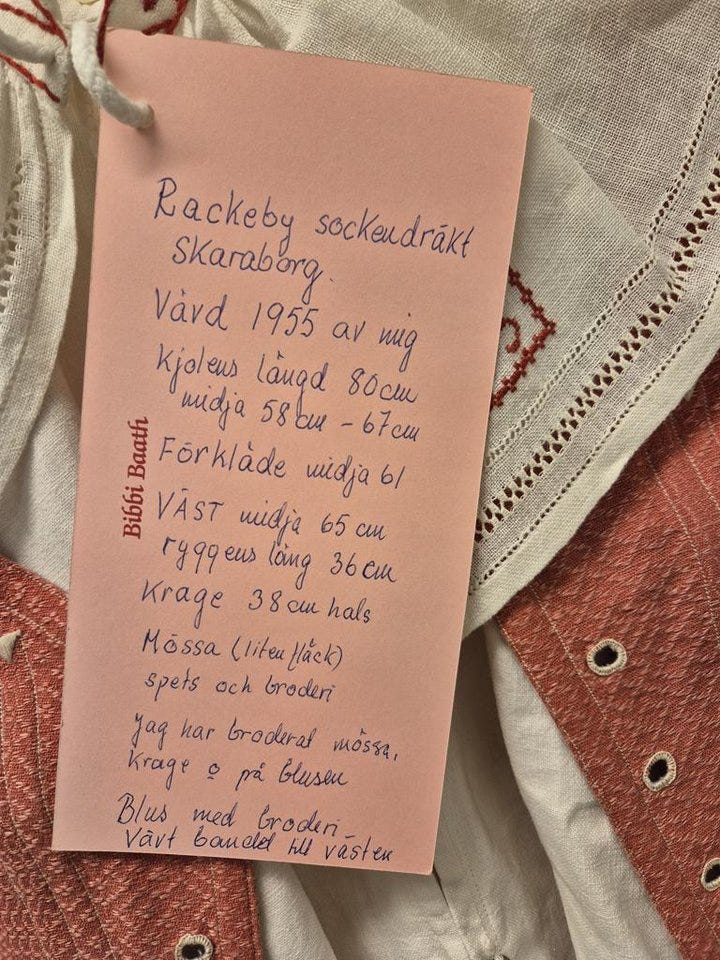 Rackeby sockendräkt
Skaraborg.
Vävd 1955 av mig
Kjolens längd 80cm
midja 58cm - 67cm
Förkläde midja 61
VÄST midja 65 cm
ryggens läng 36cm
Krage 38cm hals
Mössa (liten fläck)
spets och broderi
Jag har broderat mössa,
Krage o på blusen
Blus med broderi
Vävt bandet till västen
Bibbi Baath